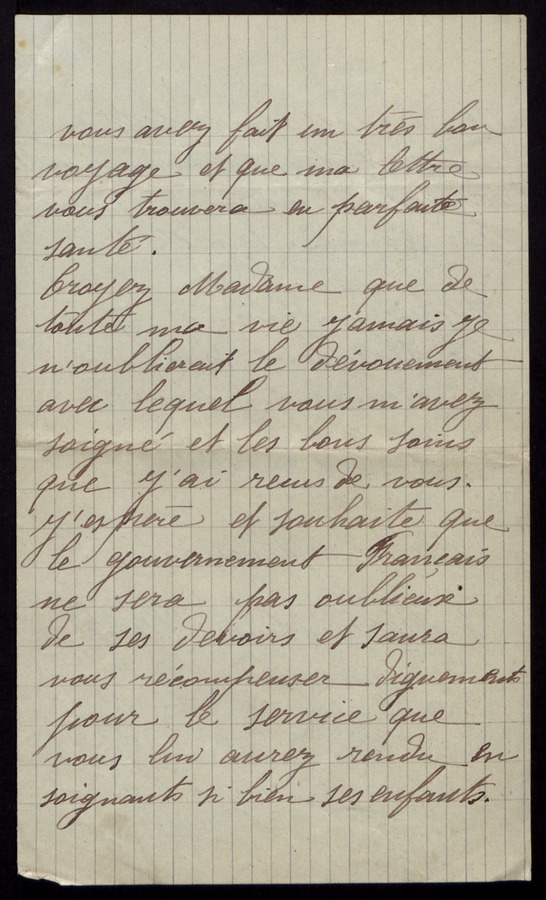 vous avez fait un très bon
voyage et que ma lettre
vous trouvera en parfaite
santé.
Croyez Madame que de
toute ma vie jamais je
n'oublierait le dévouement
avec lequel vous m'avez
soigné et les bons soins
que j'ai recus de vous.
J'espère et souhaite que
le gouvernement Français
ne sera pas oublieux
de ses devoirs et saura
vous récompenser dignements
pour le service que
vous lui aurez rendu en
soignants si bien ses enfants.